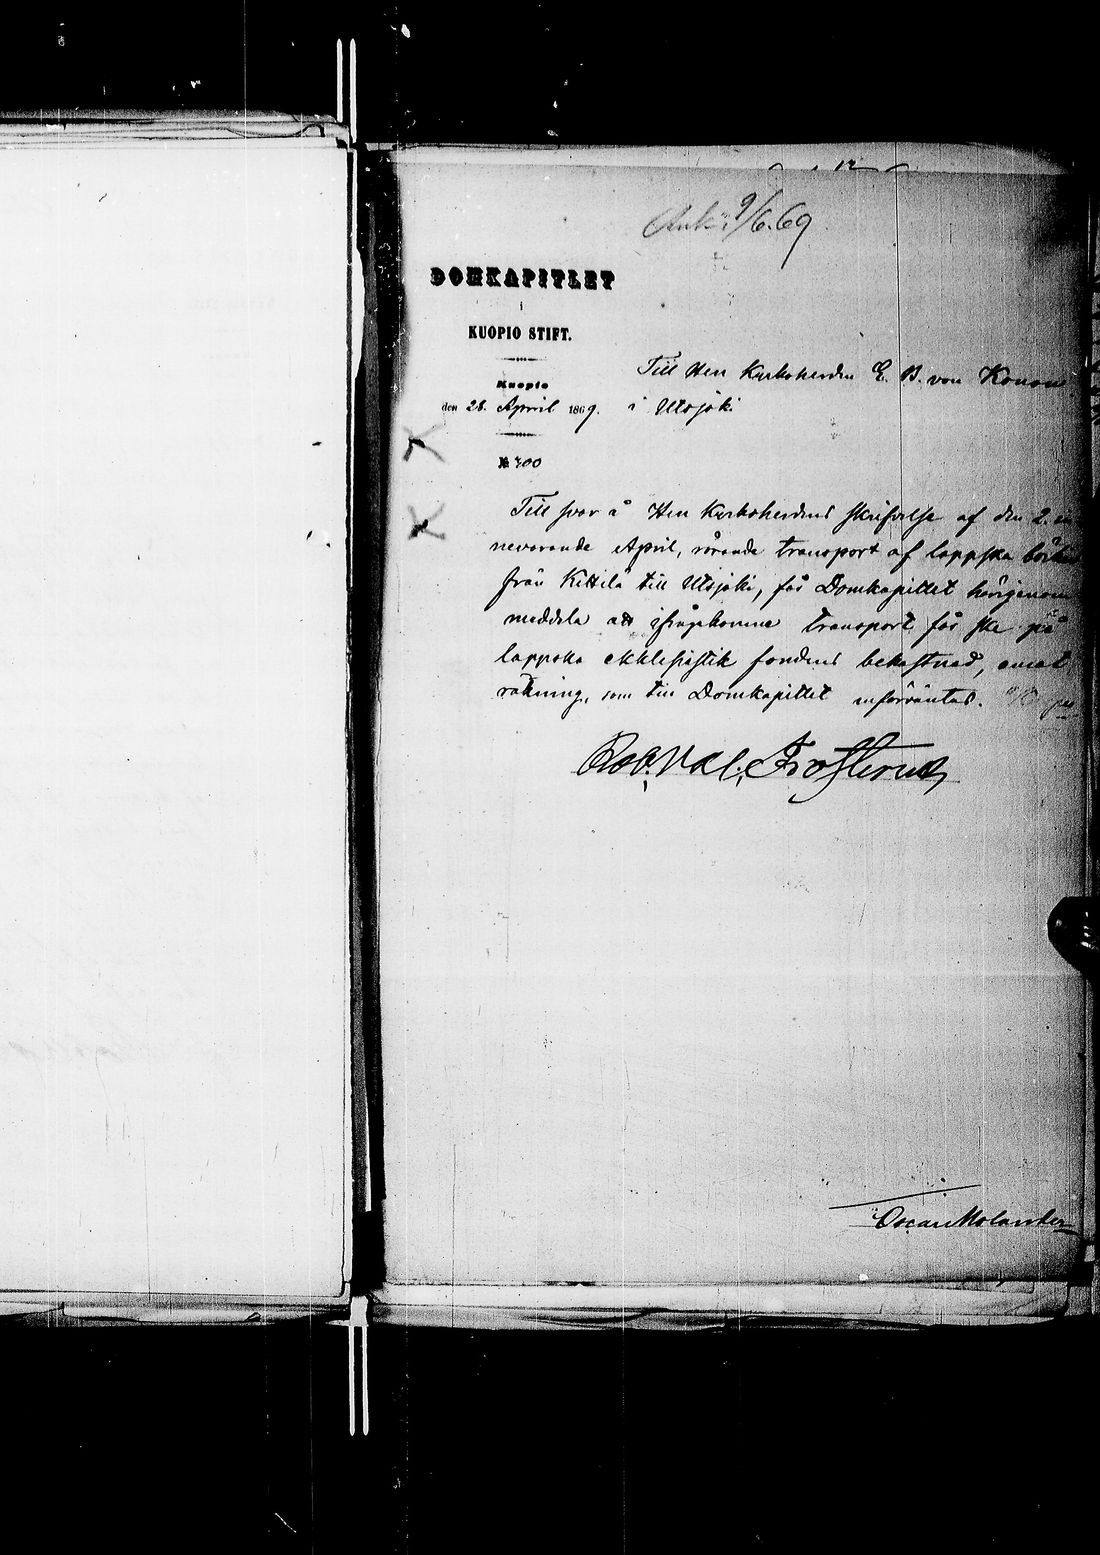 12
Ank: 9/6.69
DOMKAPITLET
i
KUOPIO STIFT.
Kuopio
den 28. April 1869.
№ 400
Till Herr Kyrkoherden E. B. von Konow
i Utsjoki
Till svar å Herr Kyrkoherdens skrifvelse af den 2. in-
nevarande April, rörande transport af lappska böcker
från Kittilä till Utsjoki, får Domkapitlet härigenom
meddela att ifrågakomne transport får ske på
lappska ekklesiastik fondens bekostnad, emot
räkning, som till Domkapitlet införväntas.
Rob. Val. Frosterus
Oscar Molander